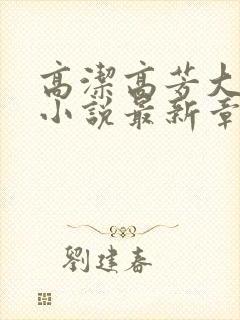 高潔高芳大
小說最新章
劉建春